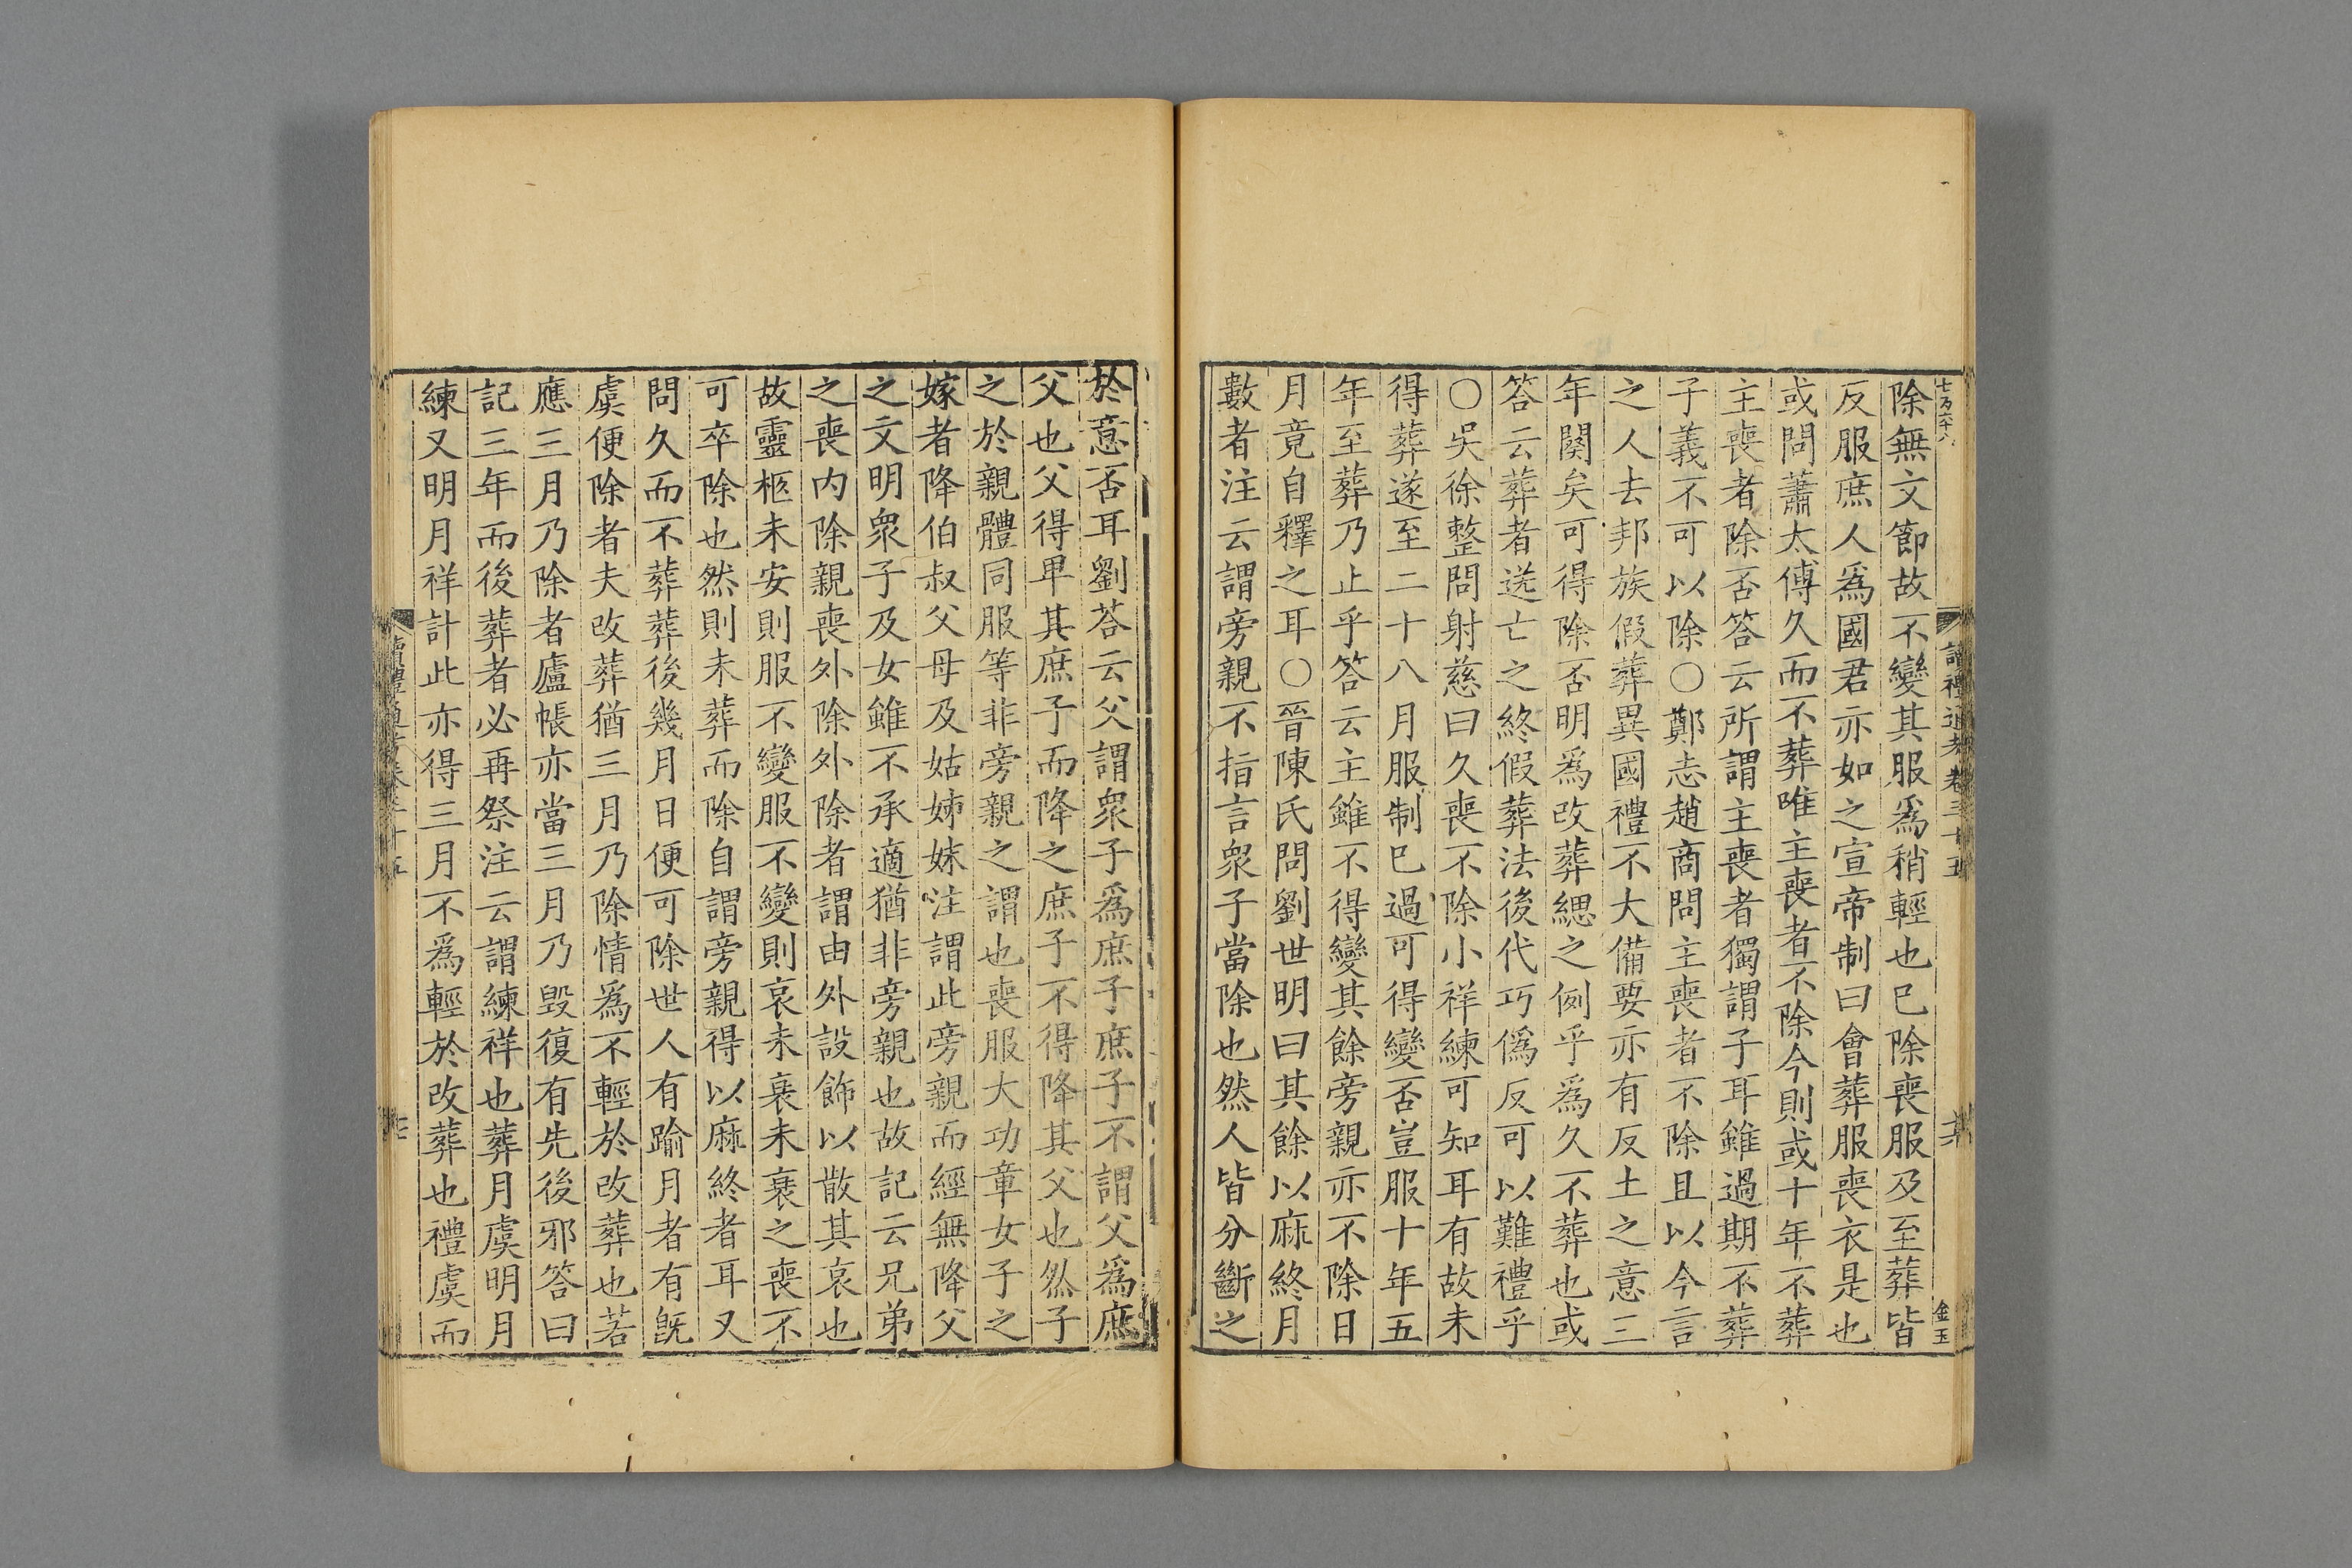 除無文節故不變其服爲稍輕也已除喪服及至葬皆
反服庶人爲國君亦如之宣帝制曰會葬服喪衣是也
或問蕭太傅久而不葬唯主喪者不除今則或十年不葬
主喪者除否答云所謂主喪者獨謂子耳雖過期不葬
子義不可以除〇鄭志趙商問主喪者不除且以今言
之人去邦族假葬異國禮不大備要亦有反土之意三
年闋矣可得除否明爲改葬緦之例乎爲久不葬也或
答云葬者送亡之終假葬法後代巧僞反可以難禮乎
〇吳徐整問射慈曰久喪不除小祥練可知耳有故未
得葬遂至二十八月服制已過可得變否豈服十年五
年至葬乃止乎答云主雖不得變其餘旁親亦不除日
月竟自釋之耳〇晉陳氏問劉世明曰其餘以麻終月
數者注云謂旁親不指言眾子當除也然人皆分斷之
於意否耳劉荅云父謂眾子爲庶子庶子不謂父爲庶
父也父得甲其庶子而降之庶子不得降其父也然子
之於親體同服等非旁親之謂也喪服大功章女子之
嫁者降伯叔父母及姑姊妹注謂此旁親而經無降父
之文明眾子及女雖不承適猶非旁親也故記云兄弟
之喪內除親喪外除外除者謂由外設飾以散其哀也
故靈柩未安則服不變服不變則哀未衰未衰之喪不
可卒除也然則未葬而除自謂旁親得以麻終者耳又
問久而不葬葬後幾月日便可除世人有踰月者有旣
虞便除者夫改葬猶三月乃除情爲不輕於改葬也若
應三月乃除者廬帳亦當三月乃毀復有先後邪答曰
記三年而後葬者必再祭注云謂練祥也葬月虞明月
練又明月祥計此亦得三月不爲輕於改葬也禮虞而